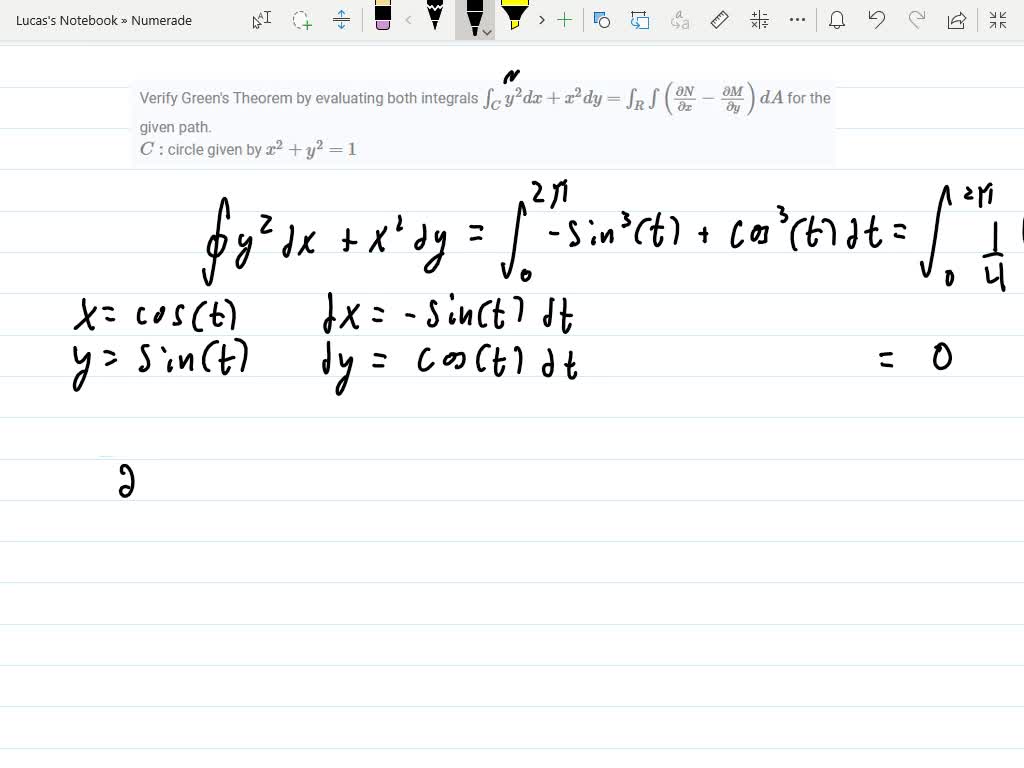 Lucas's Notebook » Numerade
N
Verify Green's Theorem by evaluating both integrals ∫_C y²dx + x²dy = ∫_R ∫ (∂N/∂x − ∂M/∂y) dA for the
given path.
C : circle given by x² + y² = 1
∮ y² dx + x² dy = ∫_0^{2π} -sin³(t) + cos³(t) dt = ∫_0^{2π} 1/4
x = cos(t) dx = -sin(t) dt
y = sin(t) dy = cos(t) dt = 0
∂